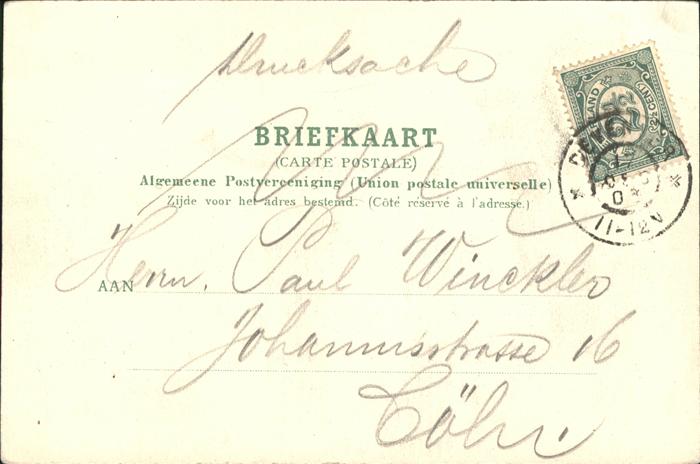 Drucksache
BRIEFKAART
(CARTE POSTALE)
Algemeene Postvereeniging (Union postale universelle)
Zijde voor het adres bestemd. (Côté réservé à l'adresse.)
AAN Herrn. Paul Winckler
Johannisstrasse 16
Cöln.
2½ CENT
11-12V